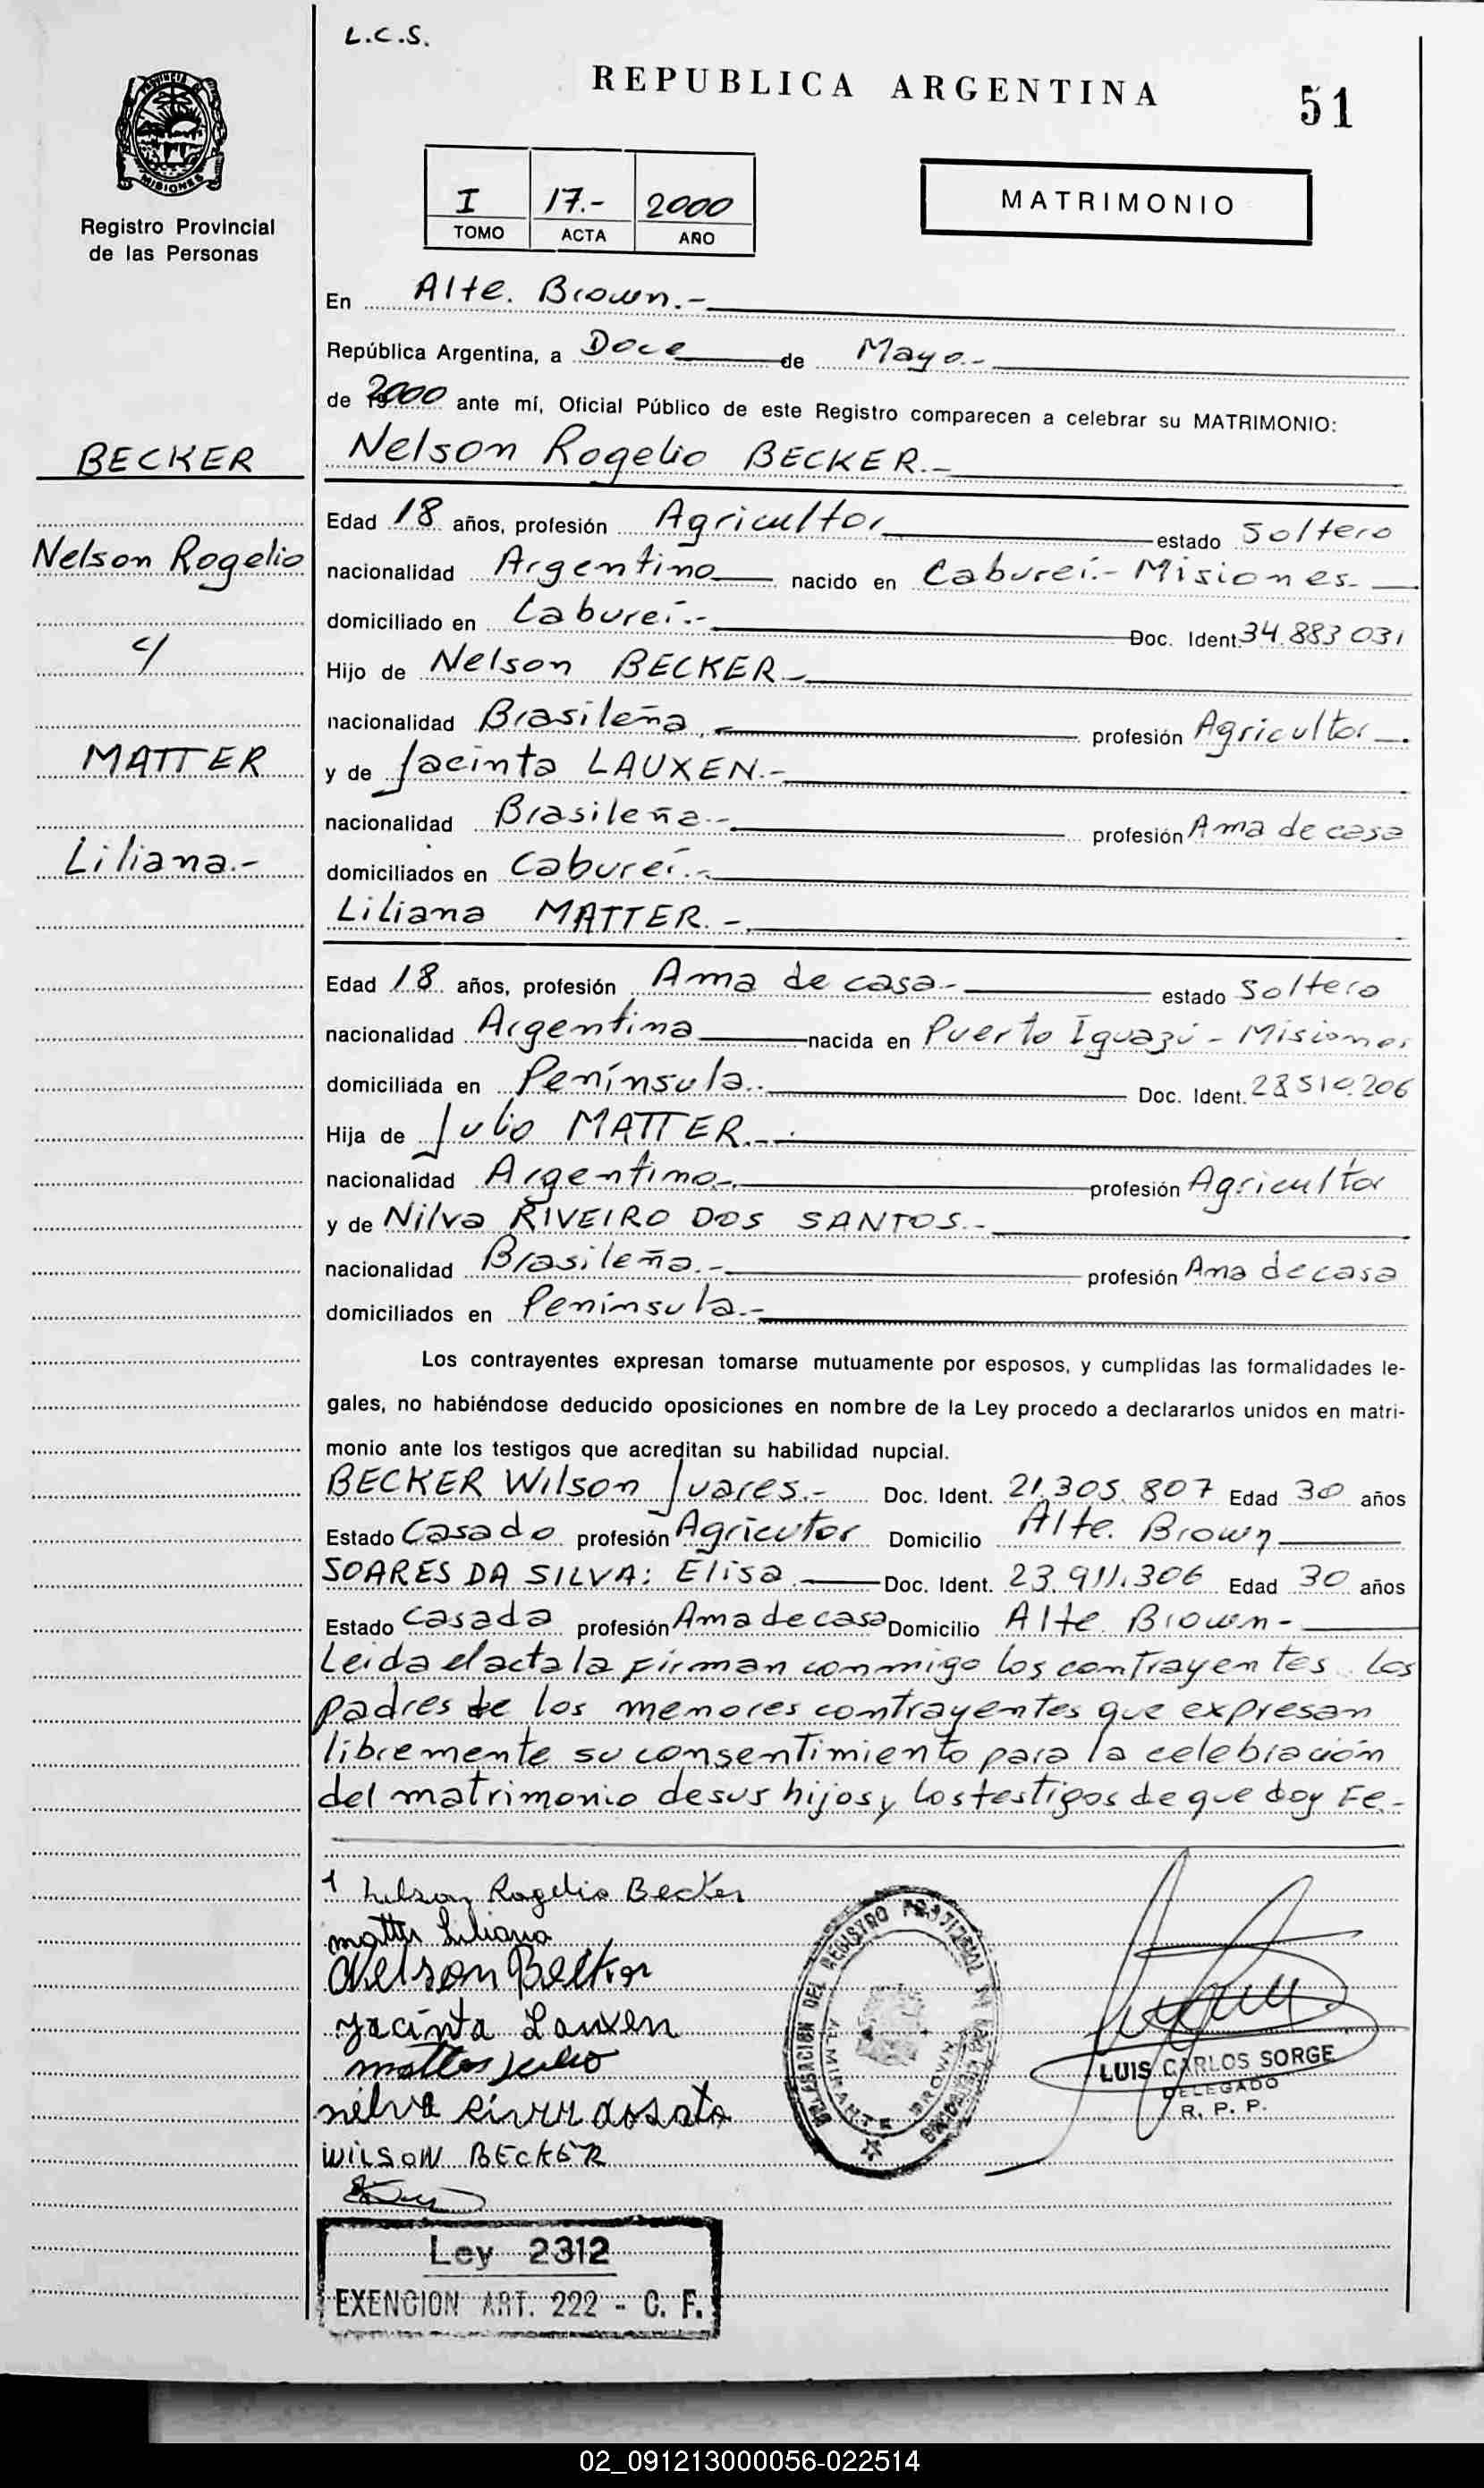 L.C.S.
REPUBLICA ARGENTINA
51
MISIONES
Registro Provincial
de las Personas
I 17.- 2000
TOMO ACTA AÑO
MATRIMONIO
En Alte. Brown.-
República Argentina, a Doce de Mayo.-
de 2000 ante mí, Oficial Público de este Registro comparecen a celebrar su MATRIMONIO:
BECKER
Nelson Rogelio
y
MATTER
Liliana.-
Nelson Rogelio BECKER.-
Edad 18 años, profesión Agricultor estado Soltero
nacionalidad Argentino nacido en Cabureí.- Misiones.
domiciliado en Cabureí.- Doc. Ident. 34.883 031
Hijo de Nelson BECKER.-
nacionalidad Brasileña.- profesión Agricultor.-
y de Jacinta LAUXEN.-
nacionalidad Brasileña.- profesión Ama de casa
domiciliados en Cabureí.-
Liliana MATTER.-
Edad 18 años, profesión Ama de casa.- estado Soltera
nacionalidad Argentina nacida en Puerto Iguazú - Misiones
domiciliada en Península.. Doc. Ident. 28 510.206
Hija de Julio MATTER.-
nacionalidad Argentino.- profesión Agricultor
y de Nilva RIVEIRO DOS SANTOS.-
nacionalidad Brasileña.- profesión Ama de casa
domiciliados en Península.-
Los contrayentes expresan tomarse mutuamente por esposos, y cumplidas las formalidades le-
gales, no habiéndose deducido oposiciones en nombre de la Ley procedo a declararlos unidos en matri-
monio ante los testigos que acreditan su habilidad nupcial.
BECKER Wilson Juares.- Doc. Ident. 21.305.807 Edad 30 años
Estado Casado profesión Agricutor Domicilio Alte. Brown
SOARES DA SILVA: Elisa Doc. Ident. 23.911.306 Edad 30 años
Estado Casada profesión Ama de casa Domicilio Alte Brown-
Leida el acta la firman conmigo los contrayentes. Los
padres de los menores contrayentes que expresan
libremente su consentimiento para la celebración
del matrimonio de sus hijos y los testigos de que doy Fe.-
Nelson Rogelio Becker
matter Liliana
Nelson Becker
Jacinta Lauxen
WILSON BECKER
ALMIRANTE BROWN
LUIS CARLOS SORGE
DELEGADO
R. P. P.
Ley 2312
EXENCION ART. 222 - C. F.
02_091213000056-022514